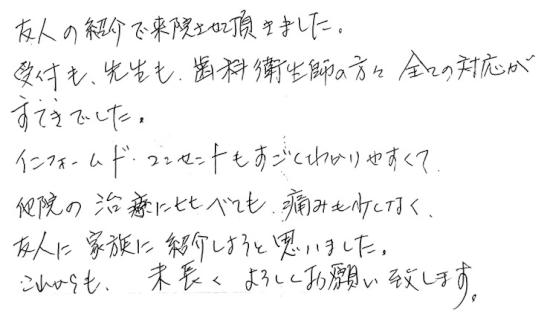 友人の紹介で来院させて頂きました。
受付も、先生も、歯科衛生師の方々 全ての対応が
すてきでした。
インフォームド・コンセントもすごくわかりやすくて
他院の治療に比べても、痛みも少しなく、
友人に家族に紹介しようと思いました。
これからも、末長くよろしくお願い致します。